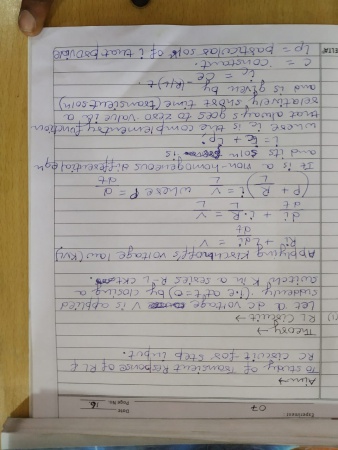 Experiment 07
Date
Page No. 16
Aim →
To study of Transient Response of RL &
RC circuit for step input.
Theory →
(1) RL Circuit →
Let a dc voltage V is applied
suddenly (i.e. at t=0) by closing a
switch K in a series R-L ckt.
Applying Kirchhoff's voltage law (KVL)
Ri + L di/dt = V
di/dt + i.R/L = V/L
(P + R/L) i = V/L where P = d/dt
It is a non-homogeneous differential eqn
and its soln is
i = ic + ip
where ic is the complementry function
that always goes to zero value in a
relatively short time (transient soln)
and is given by
ic = Ce^-(R/L)t
C = constant.
ip = particular soln of i that provide